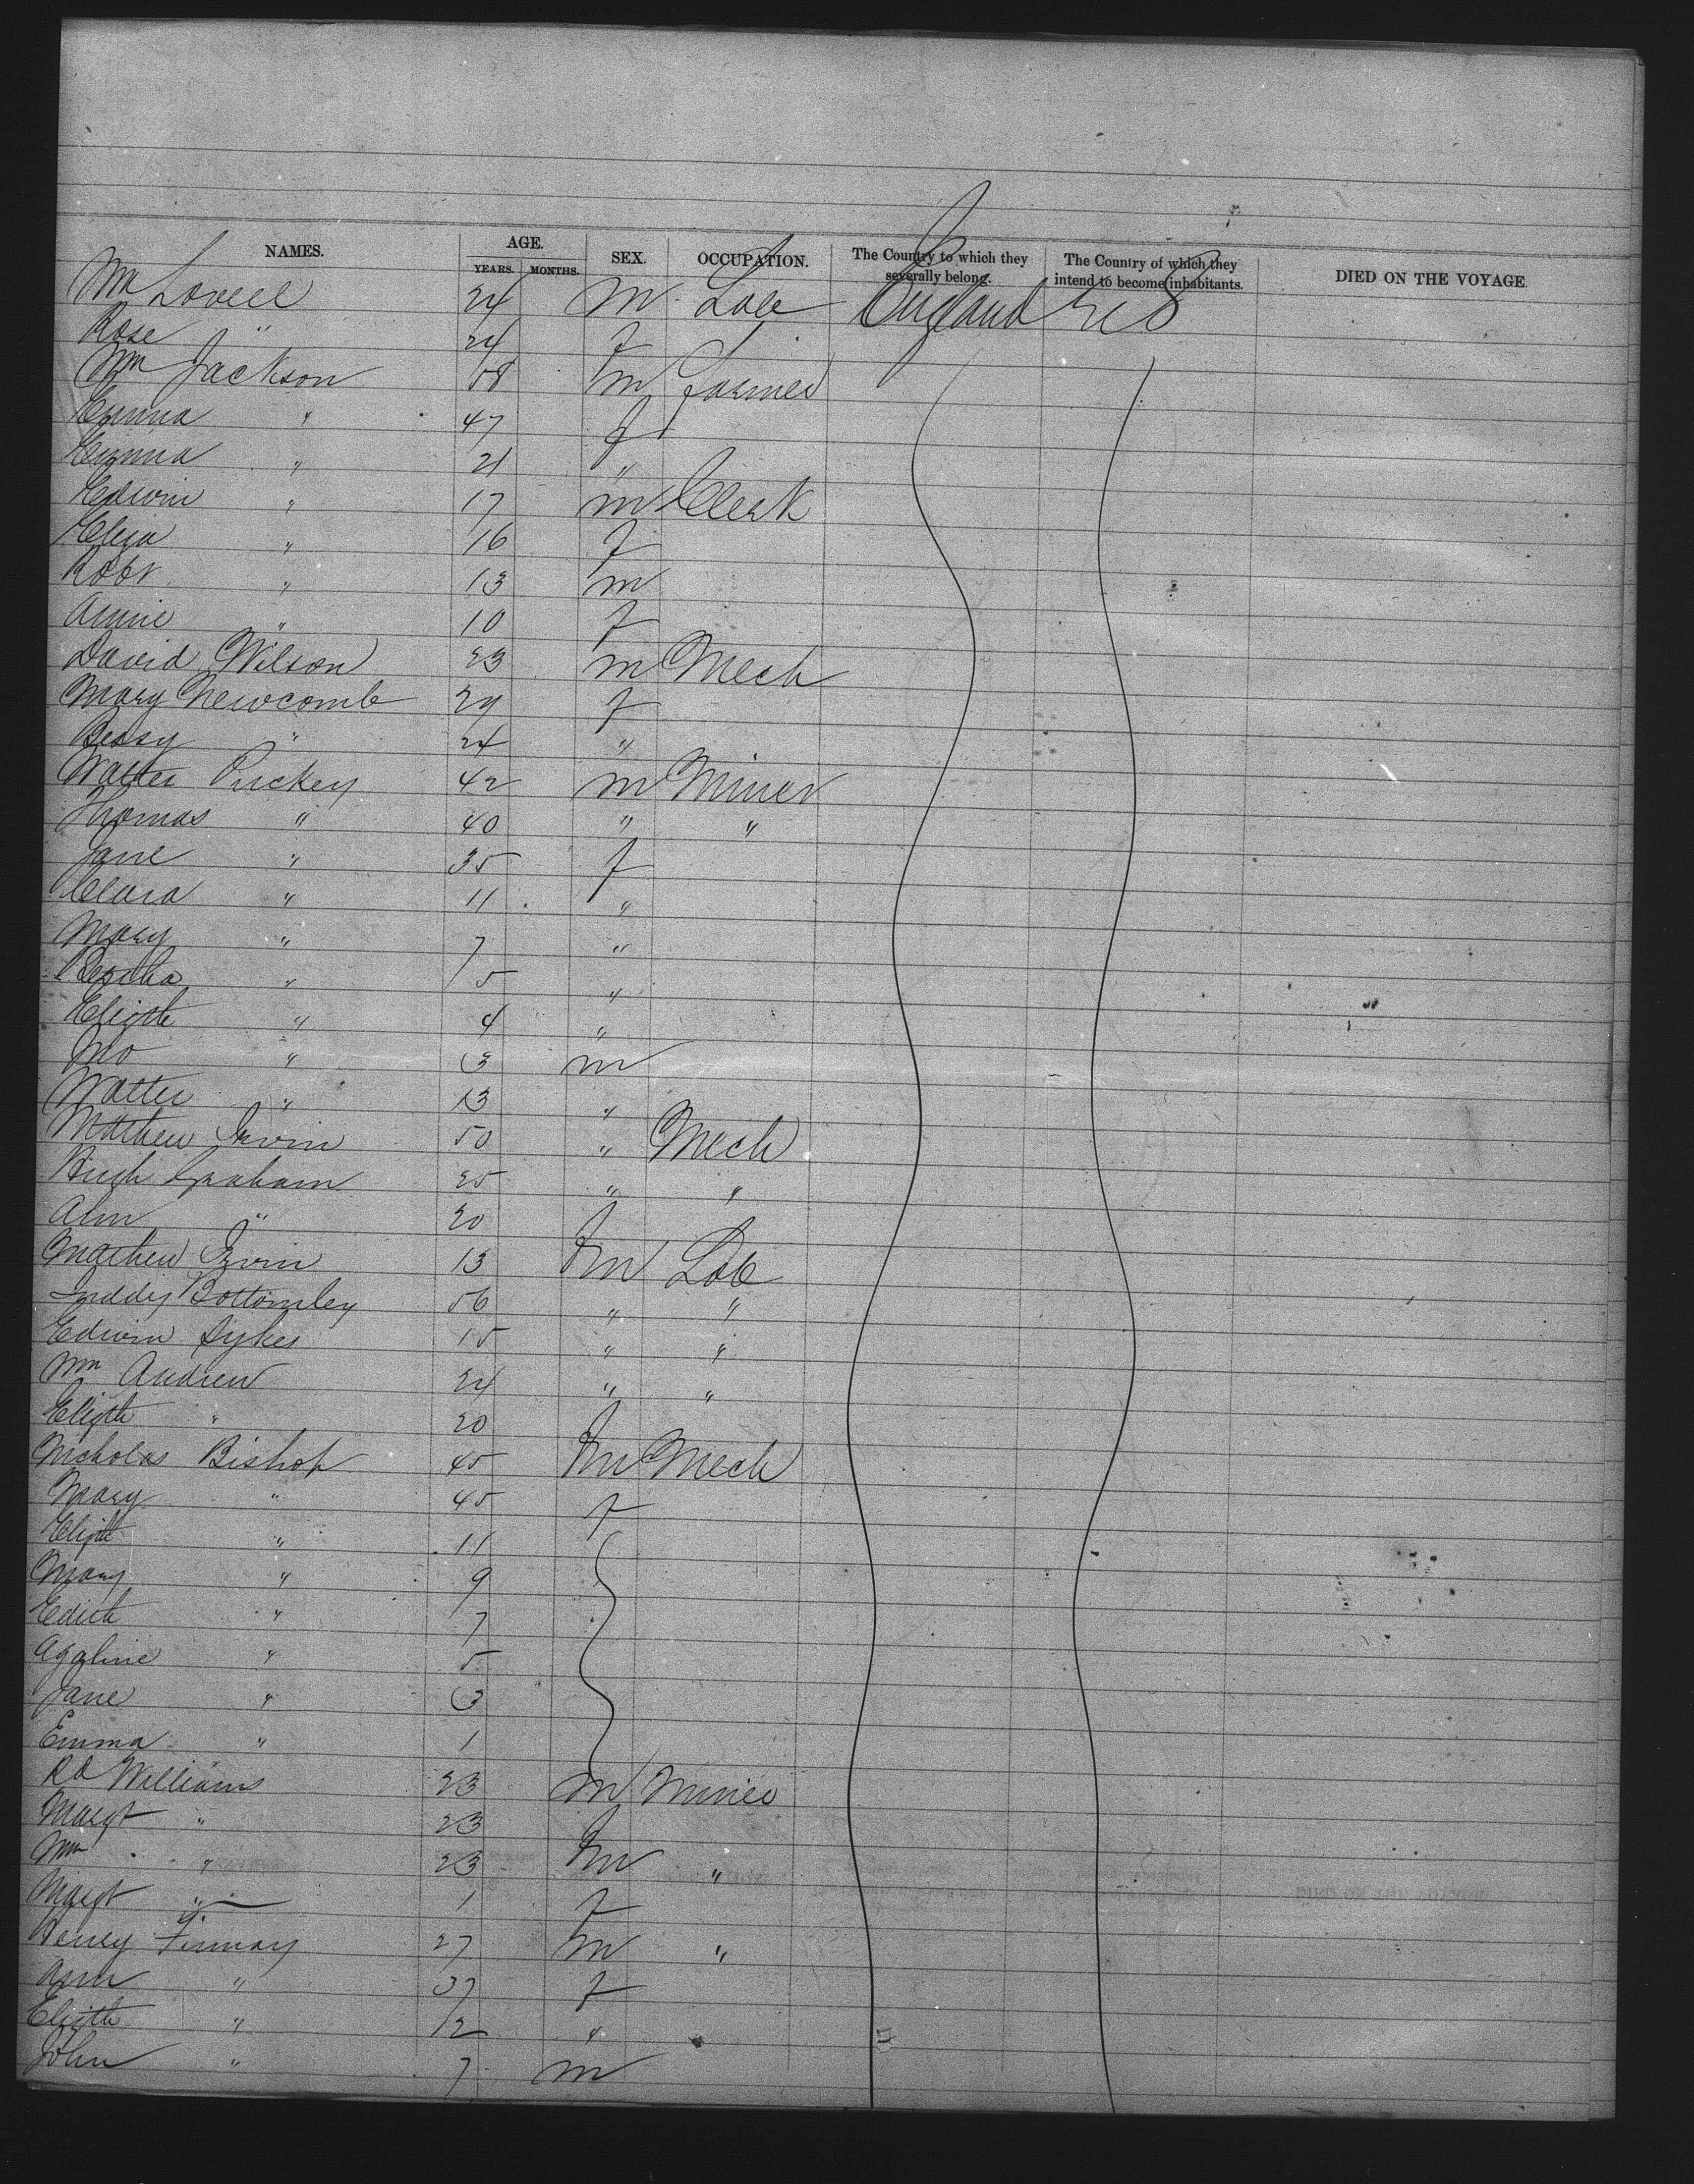 NAMES. AGE. YEARS. MONTHS. SEX. OCCUPATION. The Country to which they severally belong. The Country of which they intend to become inhabitants. DIED ON THE VOYAGE.
Wm Lovell 24 m Lab England U S
Rose " 24 f
Wm Jackson 58 m Farmer
Emma " 47 f
Emma " 21 "
Edwin " 17 m Clerk
Eliza " 16 f
Robt " 13 m
Annie " 10 f
David Wilson 23 m Mech
Mary Newcomb 29 f
Bessy " 24 "
Walter Puckey 42 m Miner
Thomas " 40 " "
Jane " 35 f
Clara " 11 "
Mary " 7 "
Bertha " 5 "
Elizth " 4 "
" 3 m
Walter " 13 "
Mathew Irvin 50 " Mech
Hugh Graham 25 " "
Ann " 20 f
Mathew Irvin 13 m Lab
Bottomley 56 " "
Edwin Sykes 15 " "
Wm Andrew 24 " "
Elizth " 20 f
Nicholas Bishop 45 m Mech
Mary " 45 f
Elizth " 11
Mary " 9
Edith " 7
" 5
Jane " 3
Emma " 1
Rd Williams 23 m Miner
Margt " 23 f
Wm " 23 m "
Margt " 1 f
Henry Finnay 27 m "
Ann " 37 f
Elizth " 12 "
John " 7 m